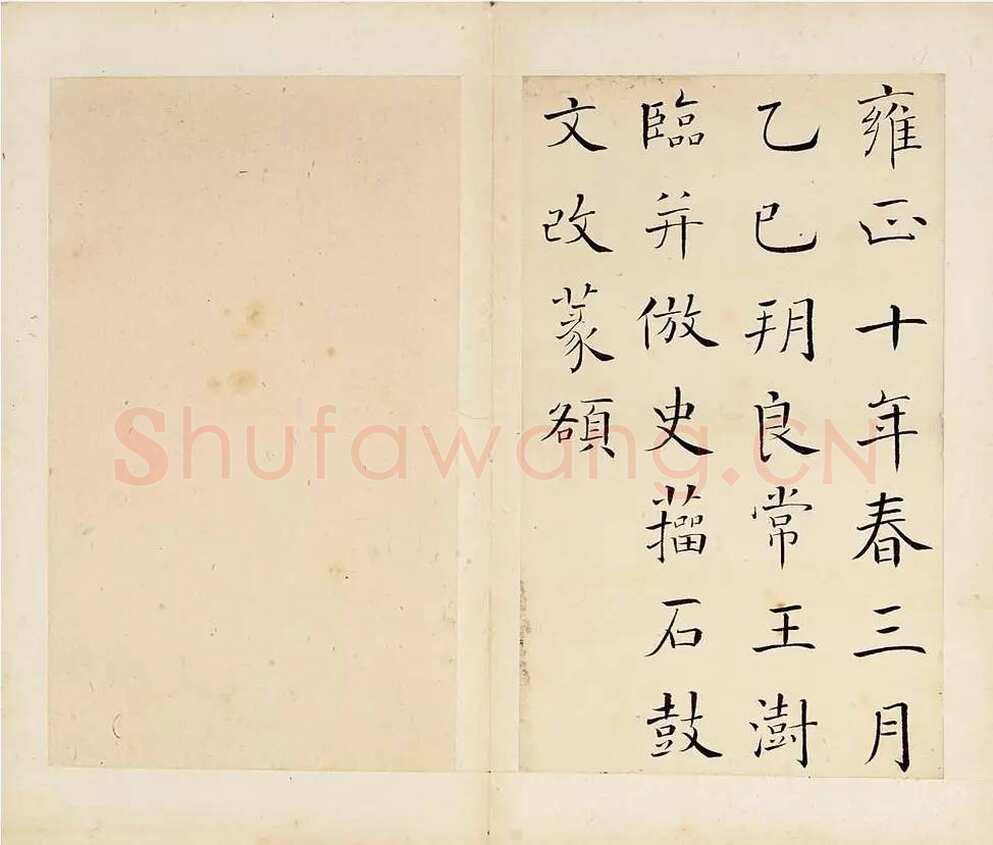 雍正十年春三月
乙巳朔良常王澍
臨并倣史籀石鼓
文改篆額
Shufawang.CN